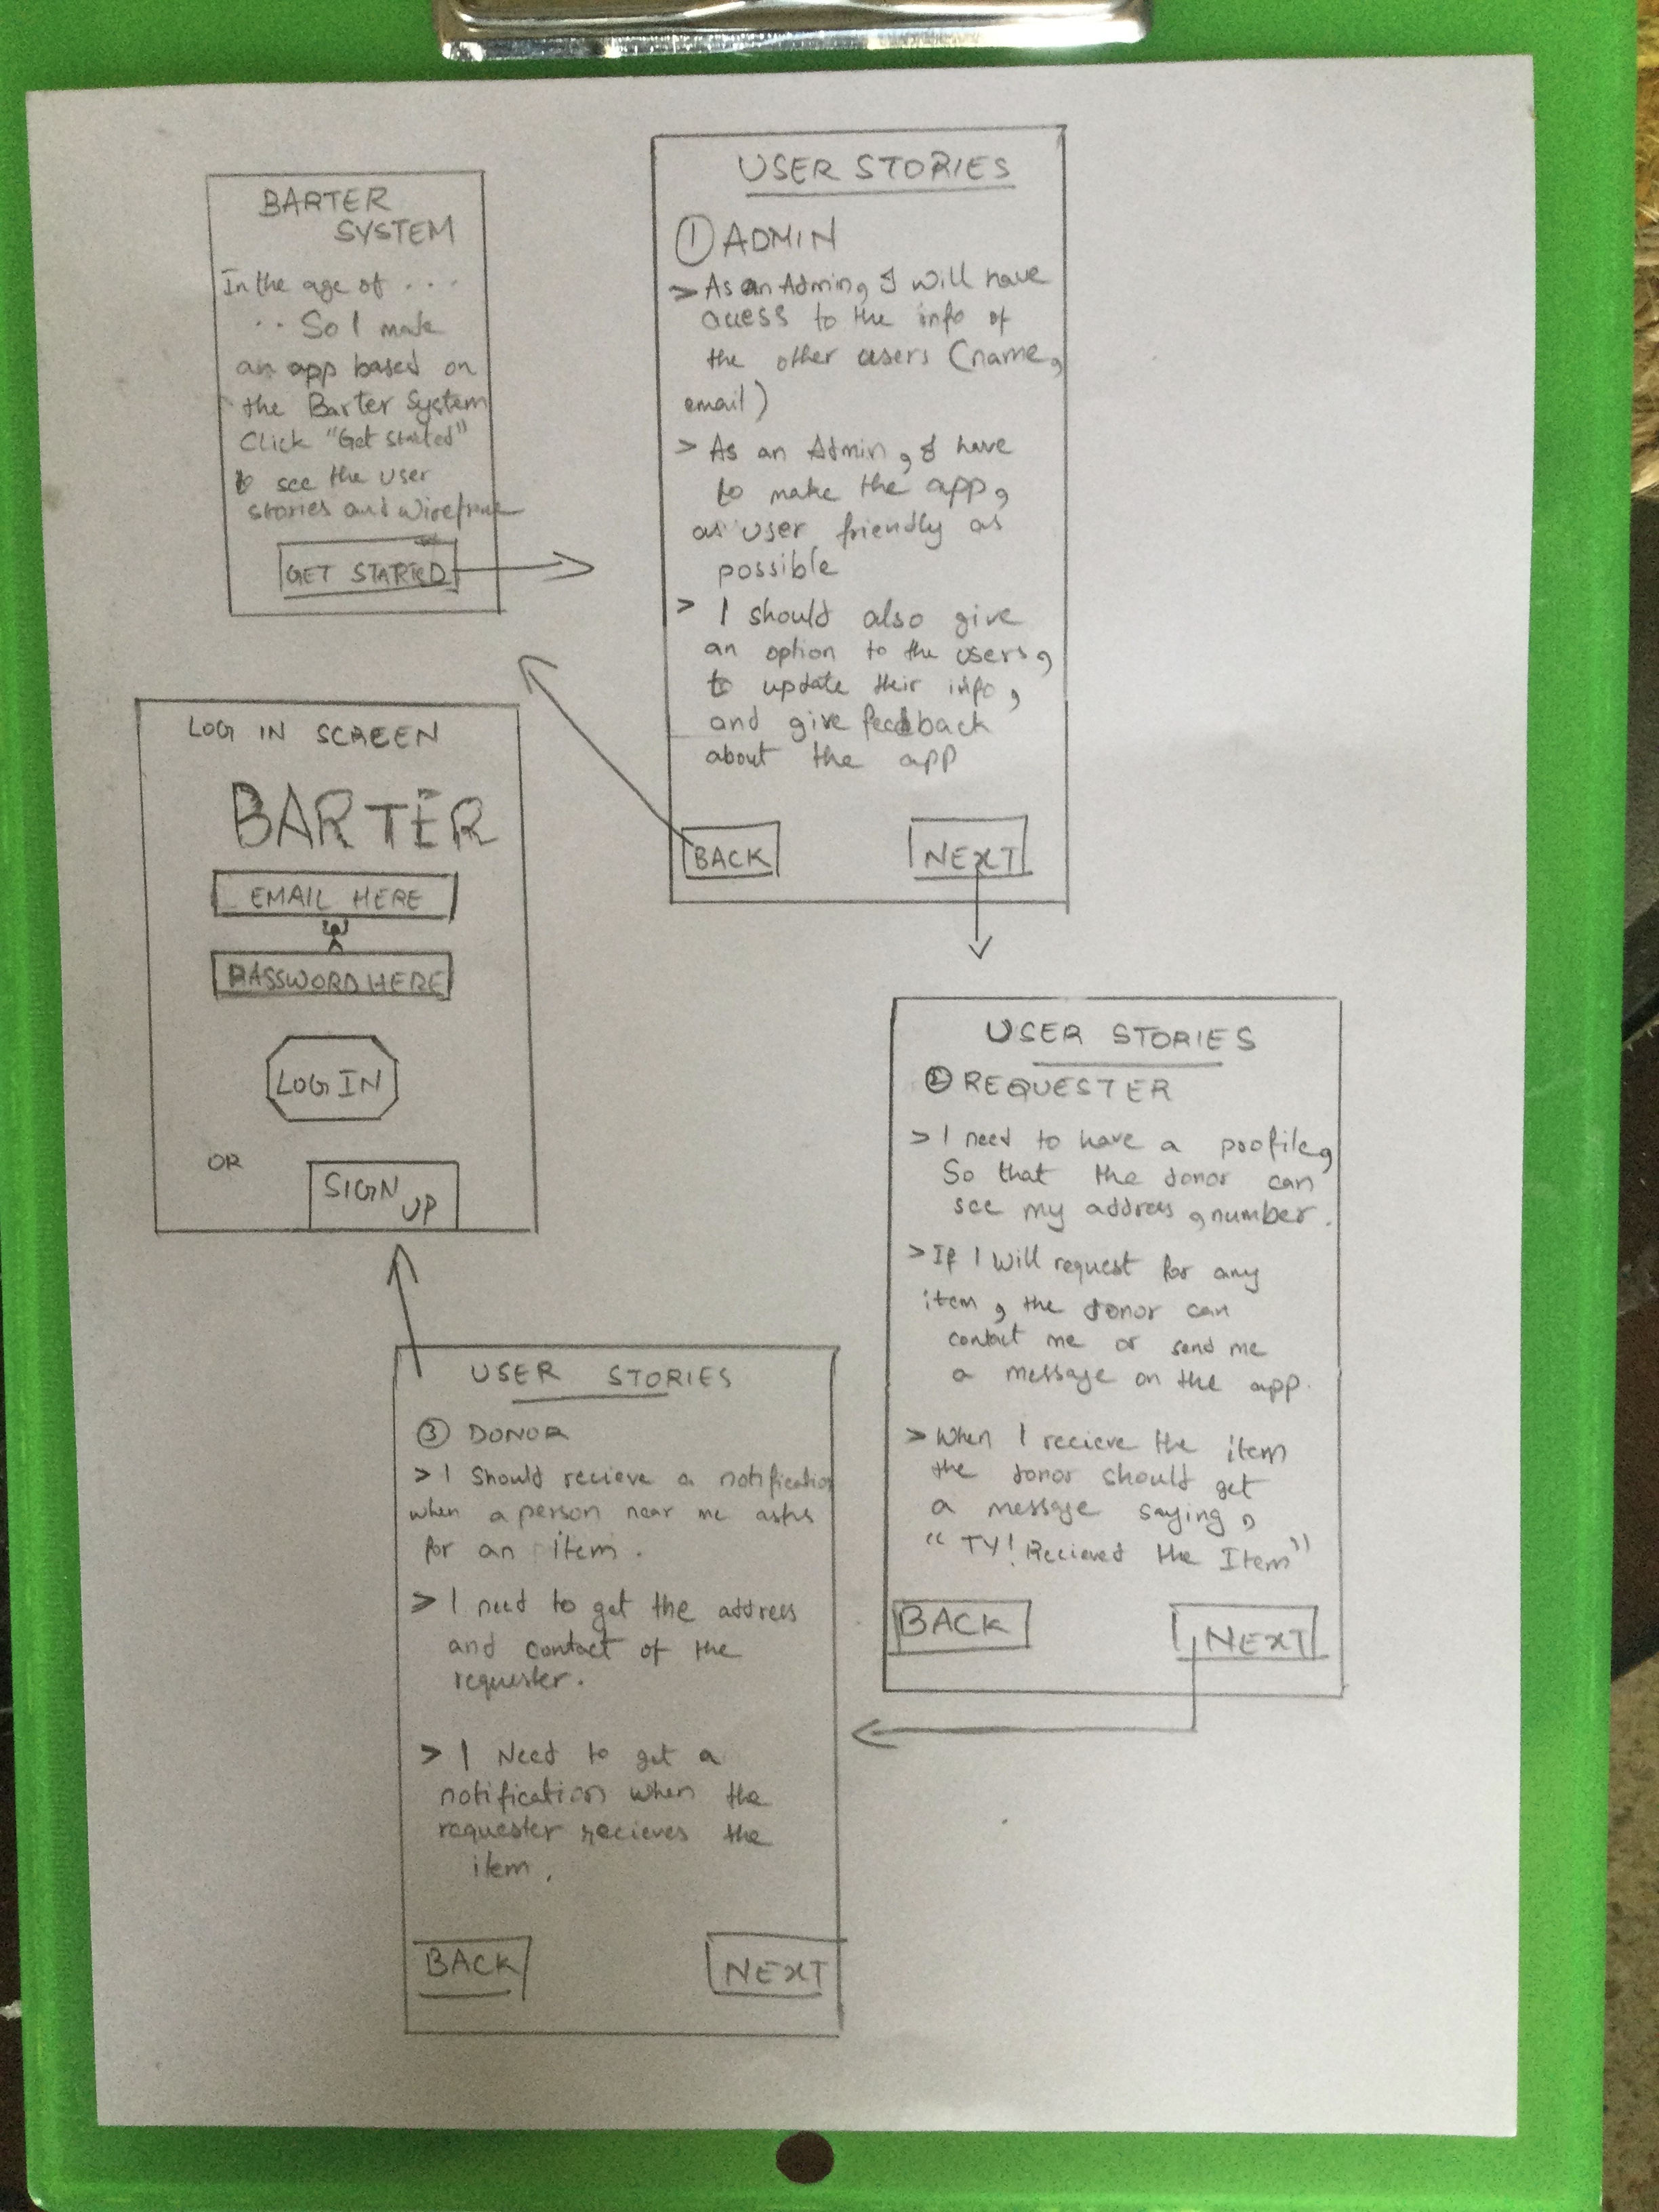 BARTER
SYSTEM
In the age of ....
.. So I make
an app based on
the Barter System
Click "Get Started"
to see the user
stories and wireframe
GET STARTED
USER STORIES
① ADMIN
> As an Admin, I will have
access to the info of
the other users (name,
email)
> As an Admin, I have
to make the app,
as user friendly as
possible
> I should also give
an option to the users,
to update their info,
and give feedback
about the app
BACK
NEXT
USER STORIES
② REQUESTER
> I need to have a profile,
So that the donor can
see my address, number.
> If I will request for any
item, the donor can
contact me or send me
a message on the app.
> When I recieve the item
the donor should get
a message saying,
"TY! Recieved the Item"
BACK
NEXT
USER STORIES
③ DONOR
> I should recieve a notification
when a person near me asks
for an item.
> I need to get the address
and contact of the
requester.
> I Need to get a
notification when the
requester recieves the
item.
BACK
NEXT
LOG IN SCREEN
BARTER
EMAIL HERE
PASSWORD HERE
LOG IN
OR
SIGN
UP